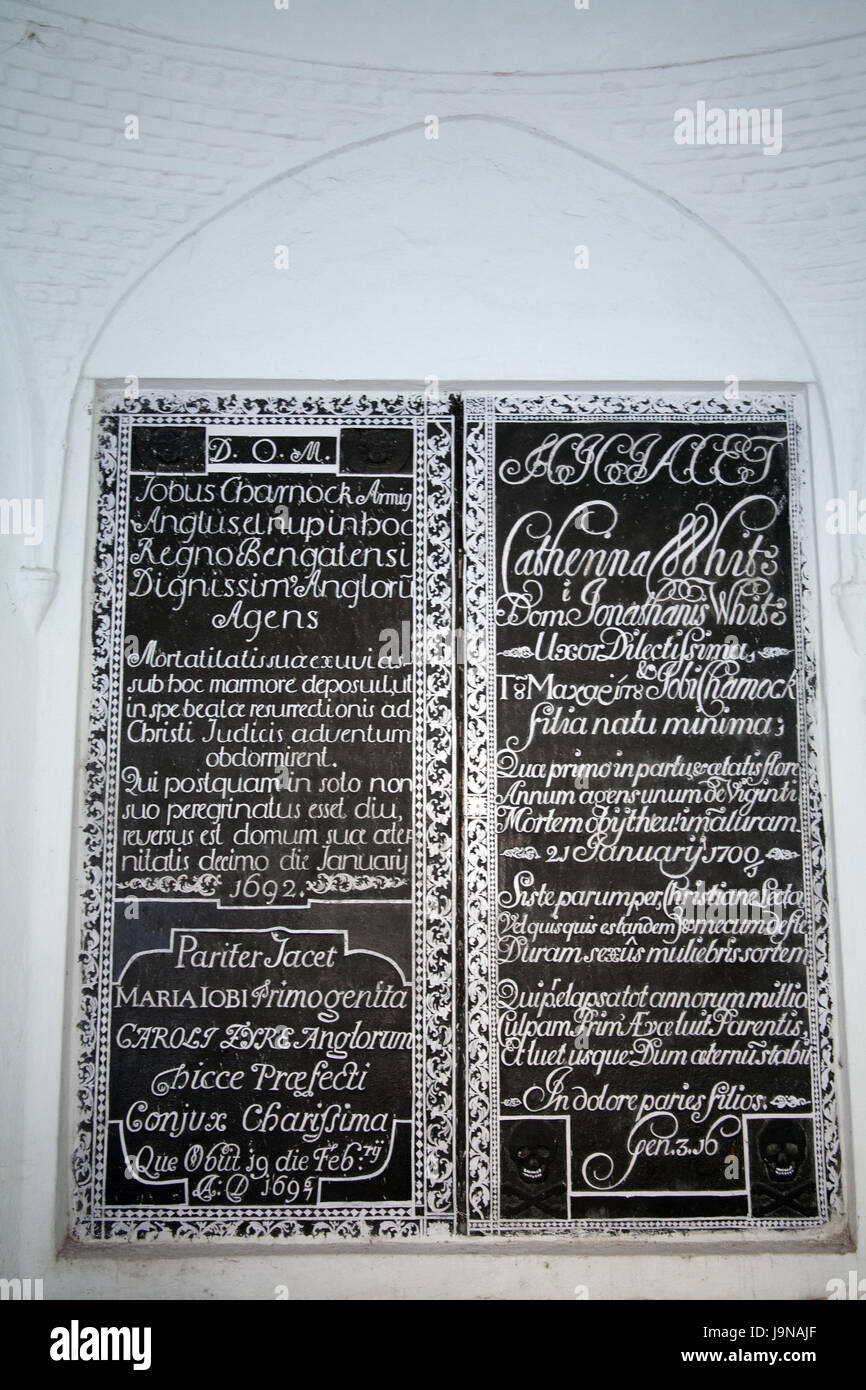 D. O. M.
Jobus Charnock Armig
Anglus et nup in hoc
Regno Bengalensi
Dignissim Anglorũ
Agens
Mortalitatis suæ exuvias
sub hoc marmore deposuit, ut
in spe beatæ resurrectionis ad
Christi Judicis adventum
obdormirent.
Qui postquam in solo non
suo peregrinatus esset diu,
reversus est domum suæ æter
nitatis decimo die January
1692.
Pariter Jacet
MARIA IOBI Primogenita
CAROLI EYRE Anglorum
hicce Præfecti
Conjux Charissima
Que Obiit 19 die Feb:rij
A. D 169 6/7
HIC JACET
Catherina Whit
Dom. Jonathanis Whit
Uxor Dilectissima
Τȣ Μακαρίτȣ Jobi Charnock
filia natu minima;
Quæ primo in partu & ætatis flore
Annum agens unum de Viginti
Mortem Obijt heu! im̃aturam
21 Januarij 1700
Siste parumper, Christiane Lecto
Vel quis quis es tandem & mecum defle
Duram sexûs muliebris sortem
Qui elapsa tot annorum millia
Culpam Prim Ævæ luit Parentis
Et luet usque Dum æternũ stabit
In dolore paries filios.
Gen. 3. 16
alamy
Image ID: J9NAJF
www.alamy.com